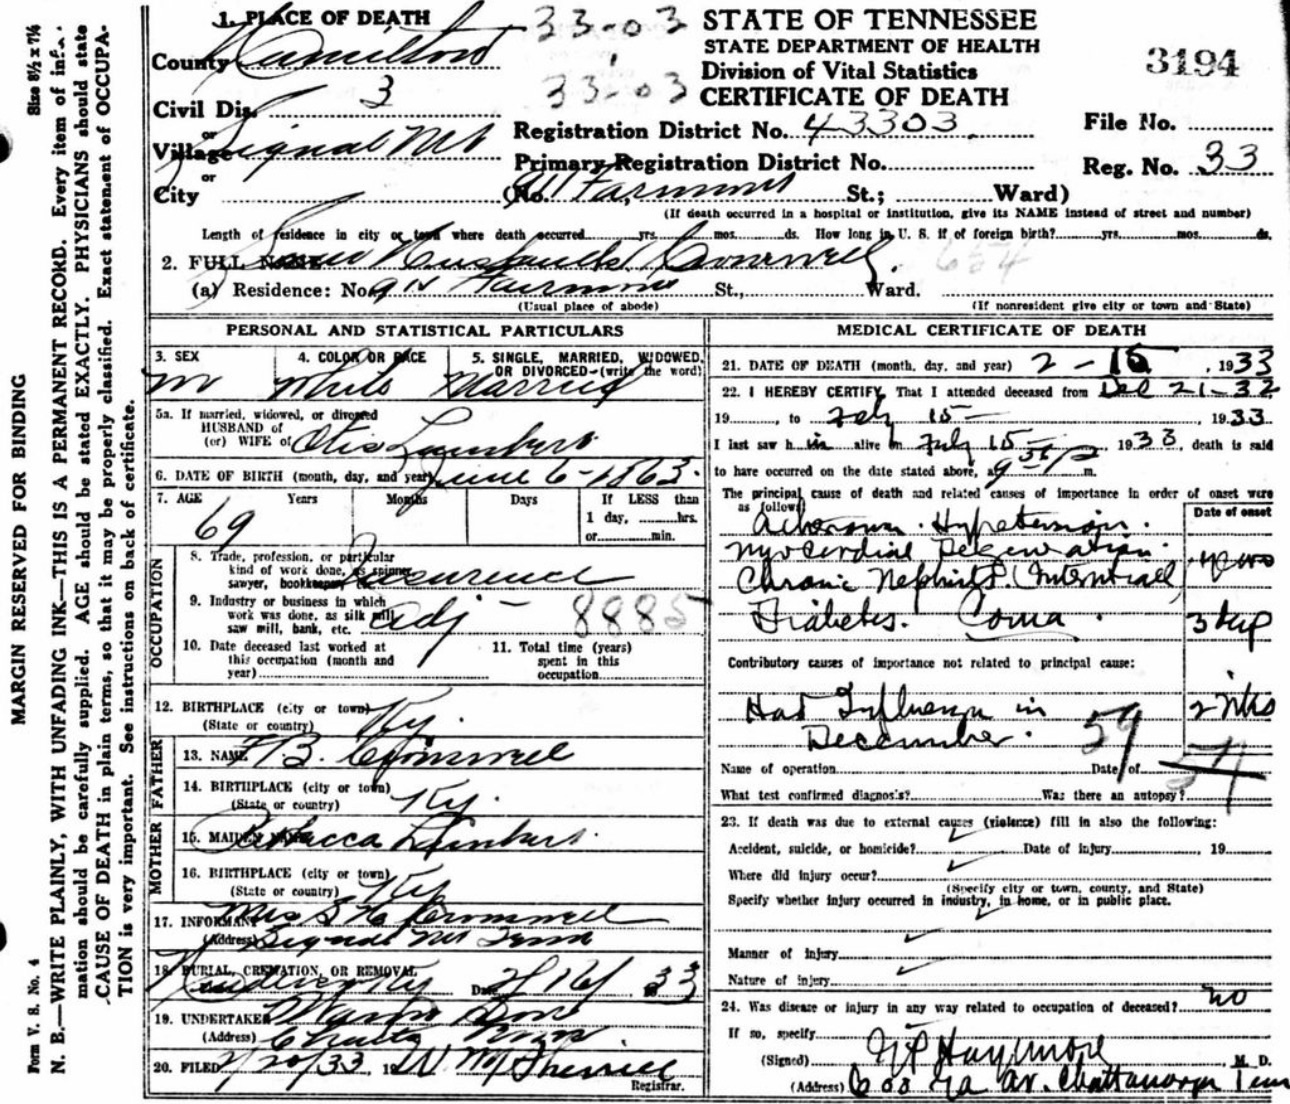 1. PLACE OF DEATH
County Hamilton
Civil Dis. 3
or
Village Signal Mt
or
City
33-03
33-03
STATE OF TENNESSEE
STATE DEPARTMENT OF HEALTH
Division of Vital Statistics
CERTIFICATE OF DEATH
3194
Registration District No. 43303
File No.
Primary Registration District No.
Reg. No. 33
(No. 911 Fairmount St.; Ward)
(If death occurred in a hospital or institution, give its NAME instead of street and number)
Length of residence in city or town where death occurred yrs. mos. ds. How long in U. S. if of foreign birth? yrs. mos. ds.
2. FULL NAME Cromwell
(a) Residence: No. St., Ward.
(Usual place of abode)
(If nonresident give city or town and State)
PERSONAL AND STATISTICAL PARTICULARS
3. SEX
4. COLOR OR RACE
5. SINGLE, MARRIED, WIDOWED, OR DIVORCED—(write the word)
m White Married
5a. If married, widowed, or divorced
HUSBAND of
(or) WIFE of Otis Lambert
6. DATE OF BIRTH (month, day, and year) June 6-1863
7. AGE Years Months Days If LESS than
1 day, hrs.
or min.
69
OCCUPATION
8. Trade, profession, or particular
kind of work done, as spinner,
sawyer, bookkeeper, etc. Insurence
9. Industry or business in which
work was done, as silk mill,
saw mill, bank, etc. adj - 8885
10. Date deceased last worked at
this occupation (month and
year)
11. Total time (years)
spent in this
occupation
12. BIRTHPLACE (city or town)
(State or country) Ky.
FATHER
13. NAME B. Cromwell
14. BIRTHPLACE (city or town)
(State or country) Ky.
MOTHER
15. MAIDEN NAME Rebecca Lambert
16. BIRTHPLACE (city or town)
(State or country) Ky
17. INFORMANT Mrs S H Cromwell
(Address) Signal Mt Tenn
18. BURIAL, CREMATION, OR REMOVAL
Ky Date 2/16/ 1933
19. UNDERTAKER
(Address) Chatta Tenn
20. FILED 2/20/33, 19 W M
Registrar.
MEDICAL CERTIFICATE OF DEATH
21. DATE OF DEATH (month, day, and year) 2-15, 1933
22. I HEREBY CERTIFY, That I attended deceased from Dec 21-32
19 , to Feby 15- 1933
I last saw h im alive on Feby 15- 1933, death is said
to have occurred on the date stated above, at 9 m.
The principal cause of death and related causes of importance in order of onset were
as follows:
Date of onset
Hypertension.
Myocardial Degeneration.
Chronic Nephritis (Interstitial)
Diabetes. Coma. 3 days
Contributory causes of importance not related to principal cause:
Had Influenza in 2 wks
December. 59
Name of operation Date of
What test confirmed diagnosis? Was there an autopsy?
23. If death was due to external causes (violence) fill in also the following:
Accident, suicide, or homicide? Date of injury , 19
Where did injury occur?
(Specify city or town, county, and State)
Specify whether injury occurred in industry, in home, or in public place.
Manner of injury
Nature of injury
24. Was disease or injury in any way related to occupation of deceased? no
If so, specify
(Signed) Haymore M. D.
(Address) Chattanooga Tenn
MARGIN RESERVED FOR BINDING
Form V. S. No. 4
Size 8½ x 7½
N. B.—WRITE PLAINLY, WITH UNFADING INK—THIS IS A PERMANENT RECORD. Every item of infor-
mation should be carefully supplied. AGE should be stated EXACTLY. PHYSICIANS should state
CAUSE OF DEATH in plain terms, so that it may be properly classified. Exact statement of OCCUPA-
TION is very important. See instructions on back of certificate.